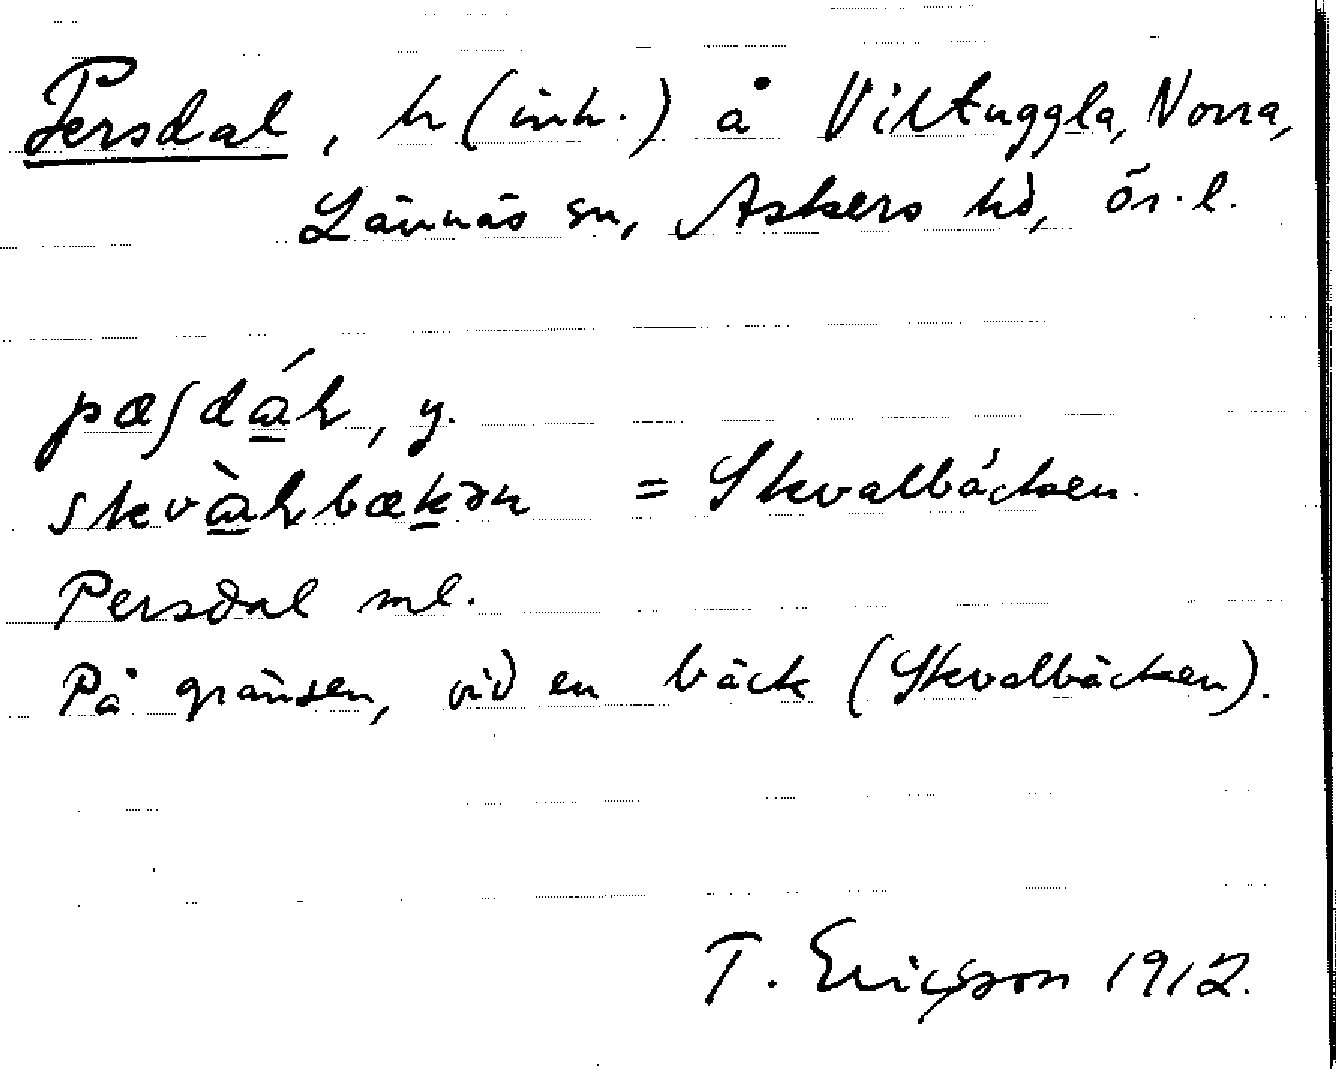 Persdal, h (ink.) å Viltuggla, Norra,
Lännäs sn, Askers hd, Ör. l.
pæʃdáɫ, y.
skvàɫbækən = Skvalbäcken.
Persdal ml.
På gränsen, vid en bäck (Skvalbäcken).
T. Ericsson 1912.